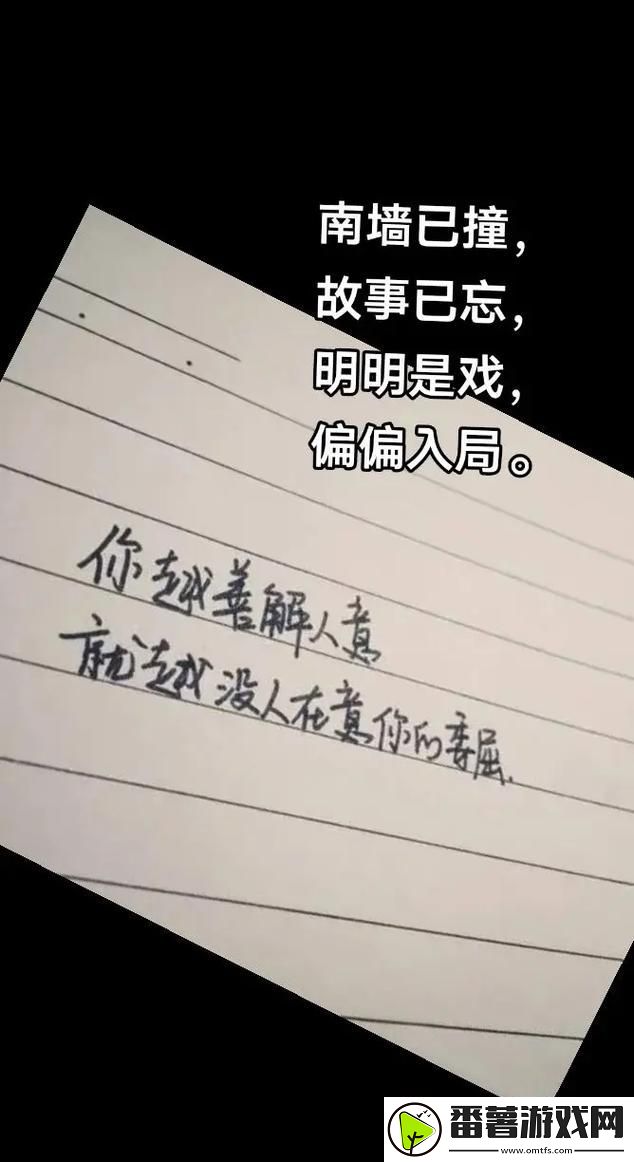 南墙已撞，
故事已忘，
明明是戏，
偏偏入局。
你越善解人意
就越没人在意你的委屈.
番薯游戏网
www.omtfs.com